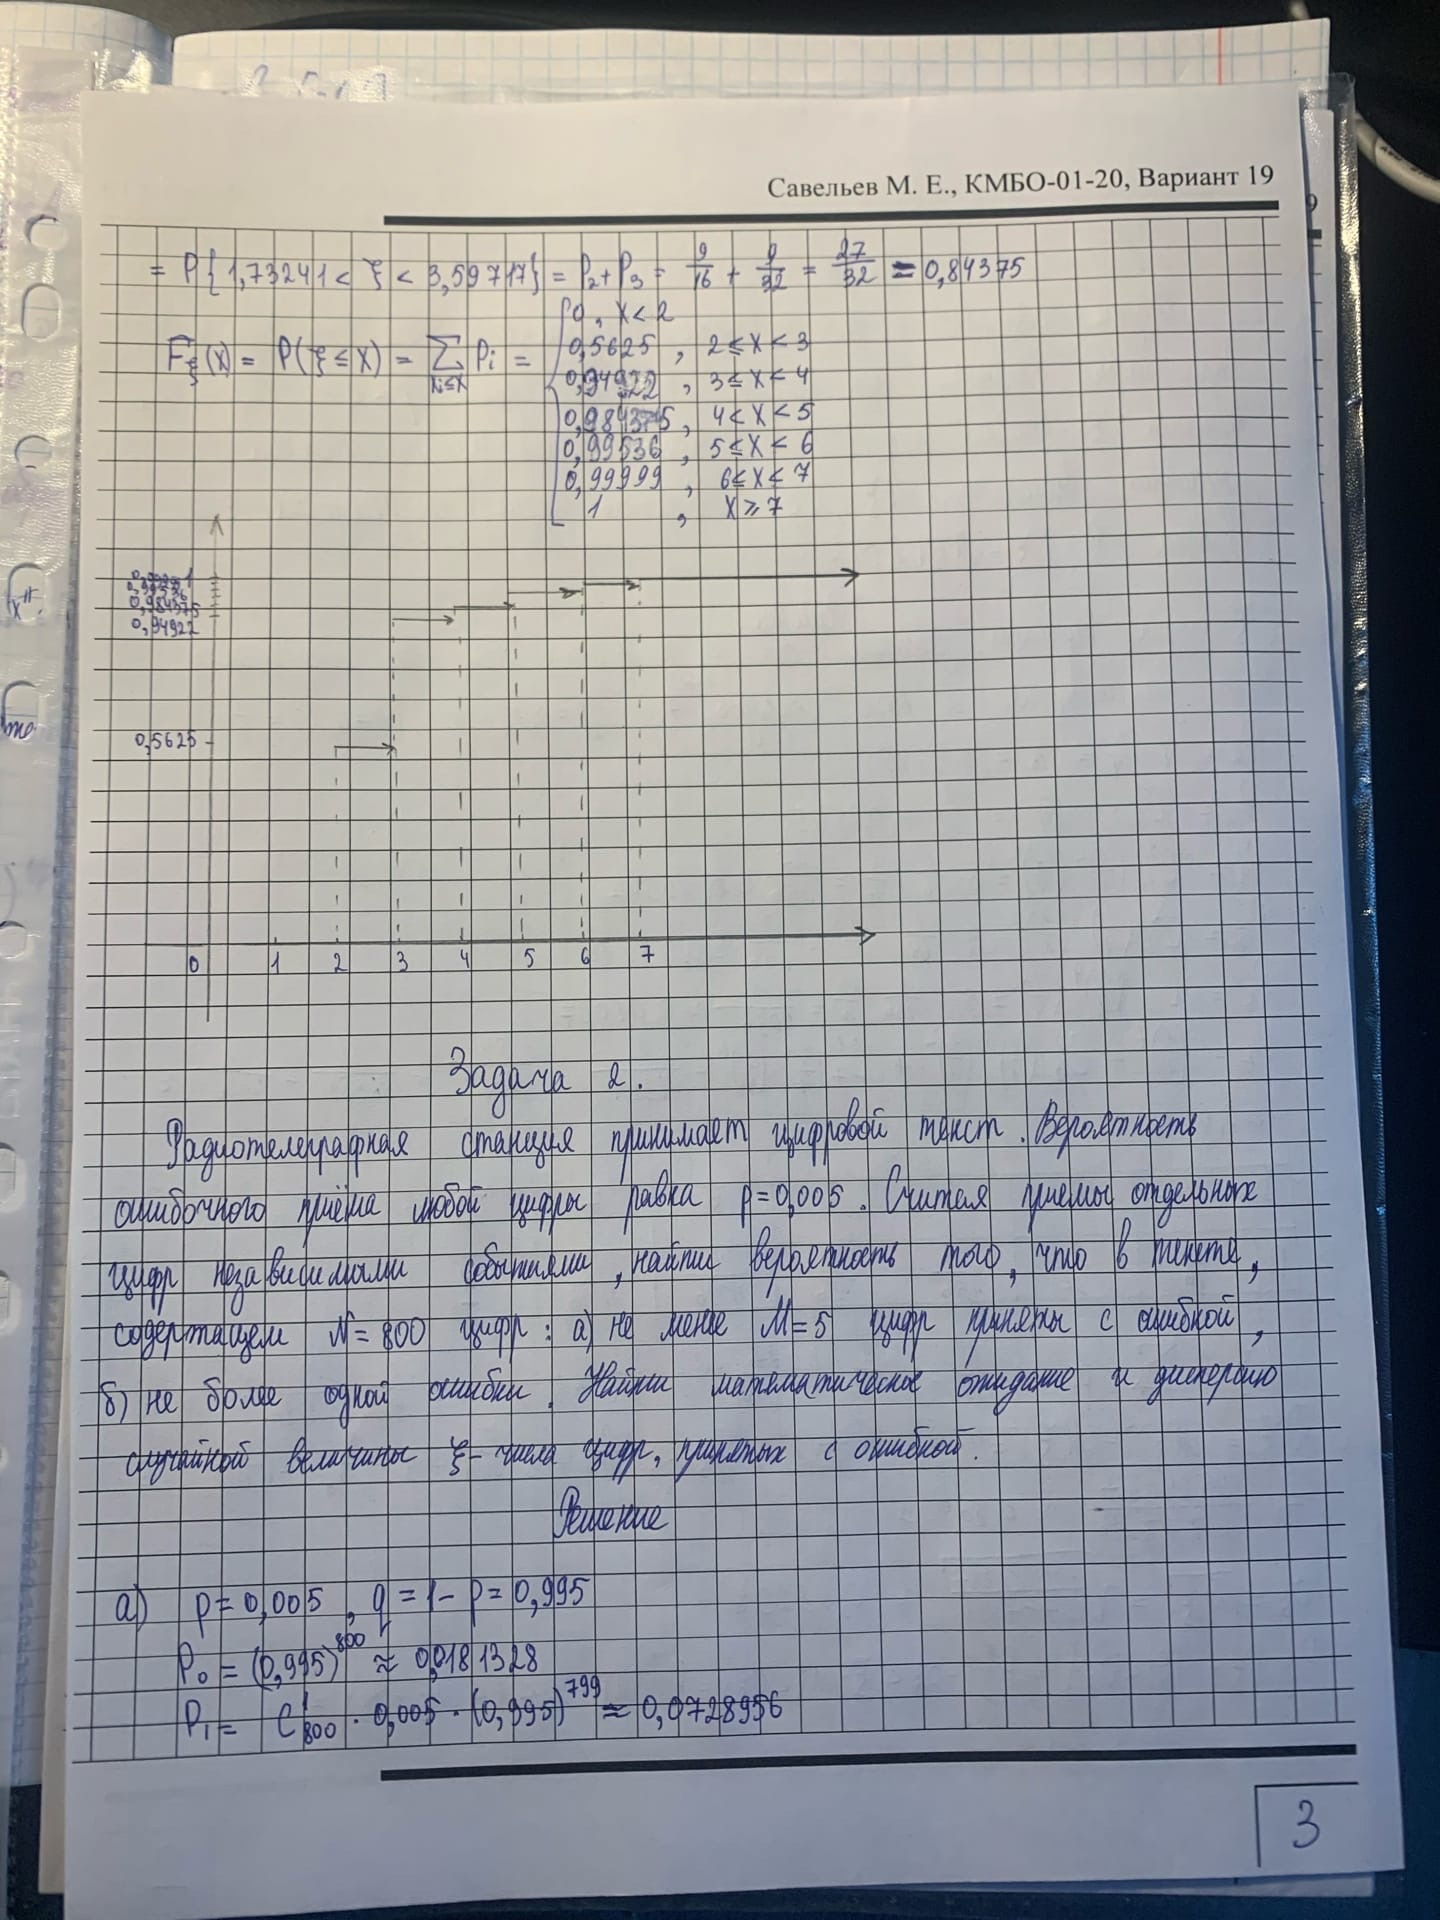 Савельев М. Е., КМБО-01-20, Вариант 19
= P{1,73241 < ξ < 3,59717} = P₂ + P₃ = 9/16 + 9/32 = 27/32 = 0,84375
F_ξ(x) = P(ξ ≤ x) = ∑_{xᵢ≤x} Pᵢ =
0, x < 2
0,5625, 2 ≤ x < 3
0,94922, 3 ≤ x < 4
0,984375, 4 < x < 5
0,99536, 5 ≤ x < 6
0,99999, 6 ≤ x < 7
1, x ≥ 7
1
0,984375
0,94922
0,5625
0 1 2 3 4 5 6 7
Задача 2.
Радиотелеграфная станция принимает цифровой текст. Вероятность
ошибочного приёма любой цифры равна p=0,005. Считая приемы отдельных
цифр независимыми событиями, найти вероятность того, что в тексте,
содержащем N=800 цифр: а) не менее M=5 цифр приняты с ошибкой,
б) не более одной ошибки. Найти математическое ожидание и дисперсию
случайной величины ξ- числа цифр, принятых с ошибкой.
Решение
а) p=0,005, q=1-p=0,995
P₀ = (0,995)⁸⁰⁰ ≈ 0,0181328
P₁ = C¹₈₀₀ · 0,005 · (0,995)⁷⁹⁹ ≈ 0,0728956
3